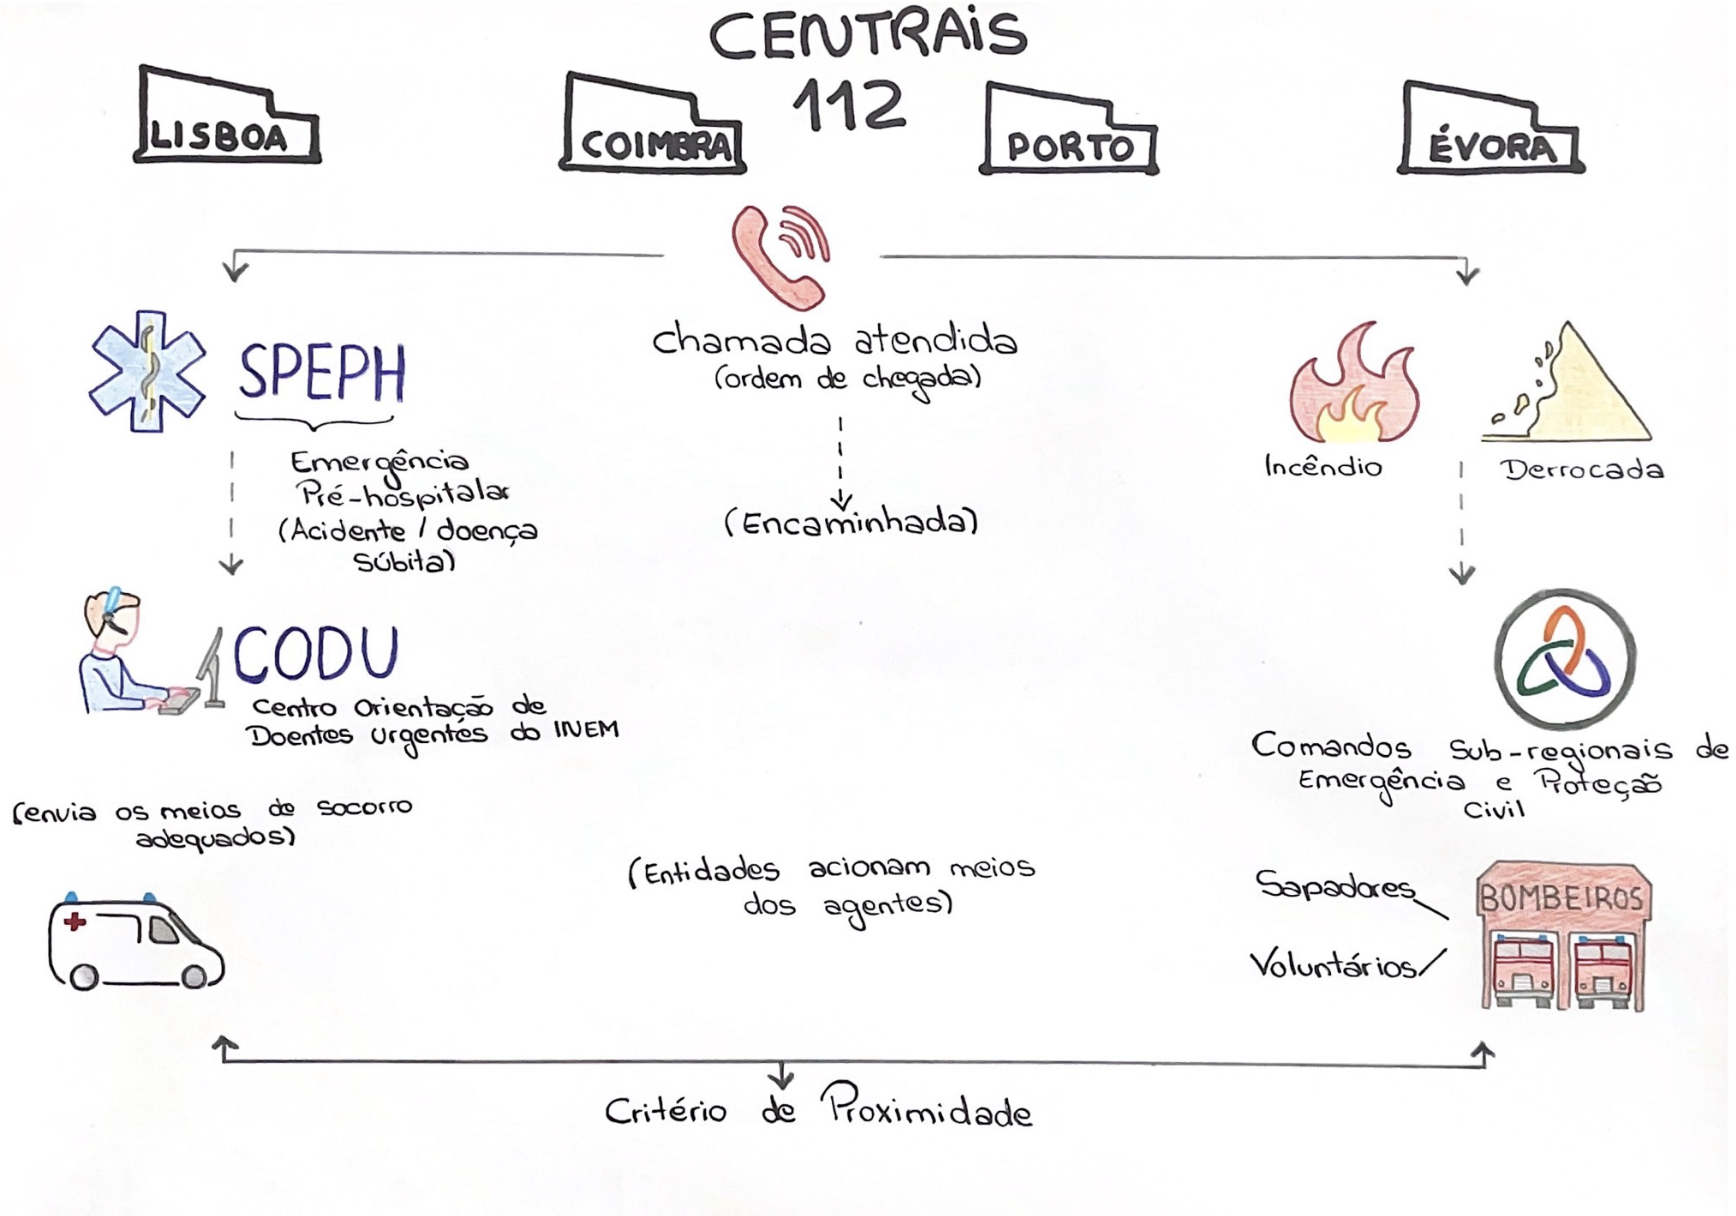 CENTRAIS
112
LISBOA
COIMBRA
PORTO
ÉVORA
SPEPH
Emergência
Pré-hospitalar
(Acidente / doença
súbita)
chamada atendida
(ordem de chegada)
(Encaminhada)
Incêndio
Derrocada
CODU
Centro Orientação de
Doentes Urgentes do INEM
(envia os meios de socorro
adequados)
(Entidades acionam meios
dos agentes)
Comandos Sub-regionais de
Emergência e Proteção
Civil
Sapadores
Voluntários
BOMBEIROS
Critério de Proximidade